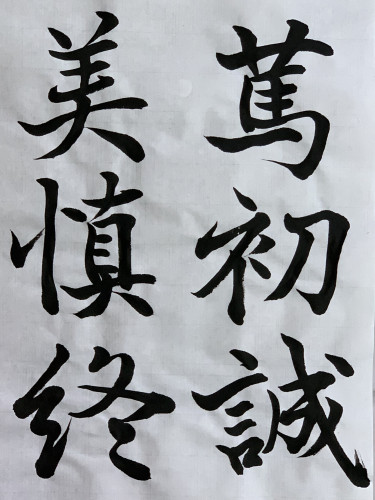 篤初誠
美慎終